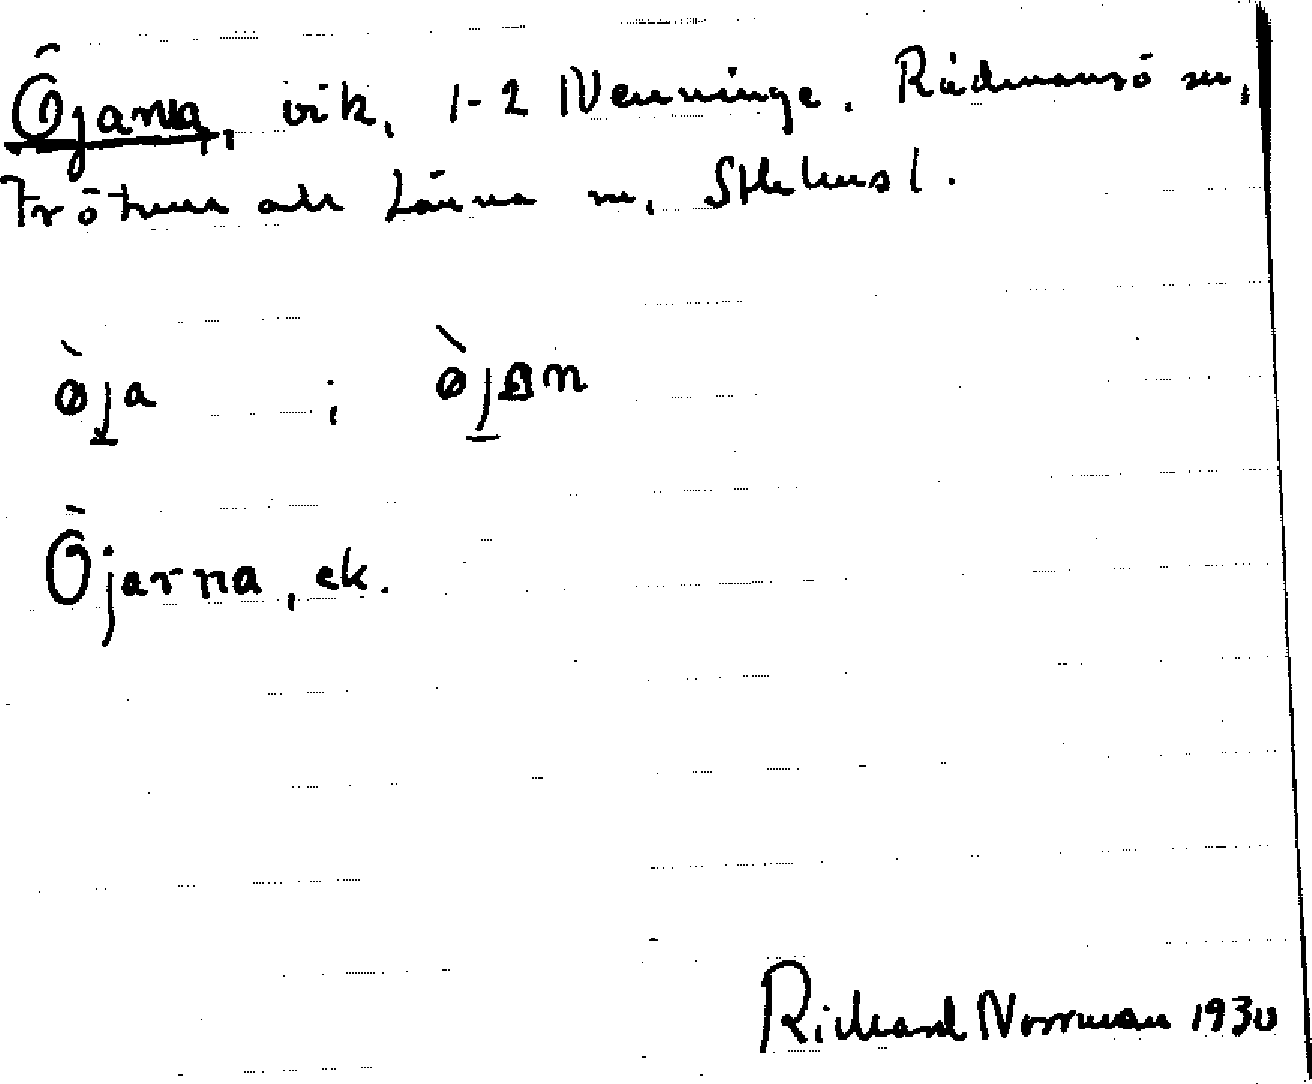 Öjarna, vik, 1-2 Nenninge. Rådmansö sn,
Frötuna och Länna sn, Sthlms l.
öja ; öjan
Öjarna, ek.
Rickard Norrman 1930